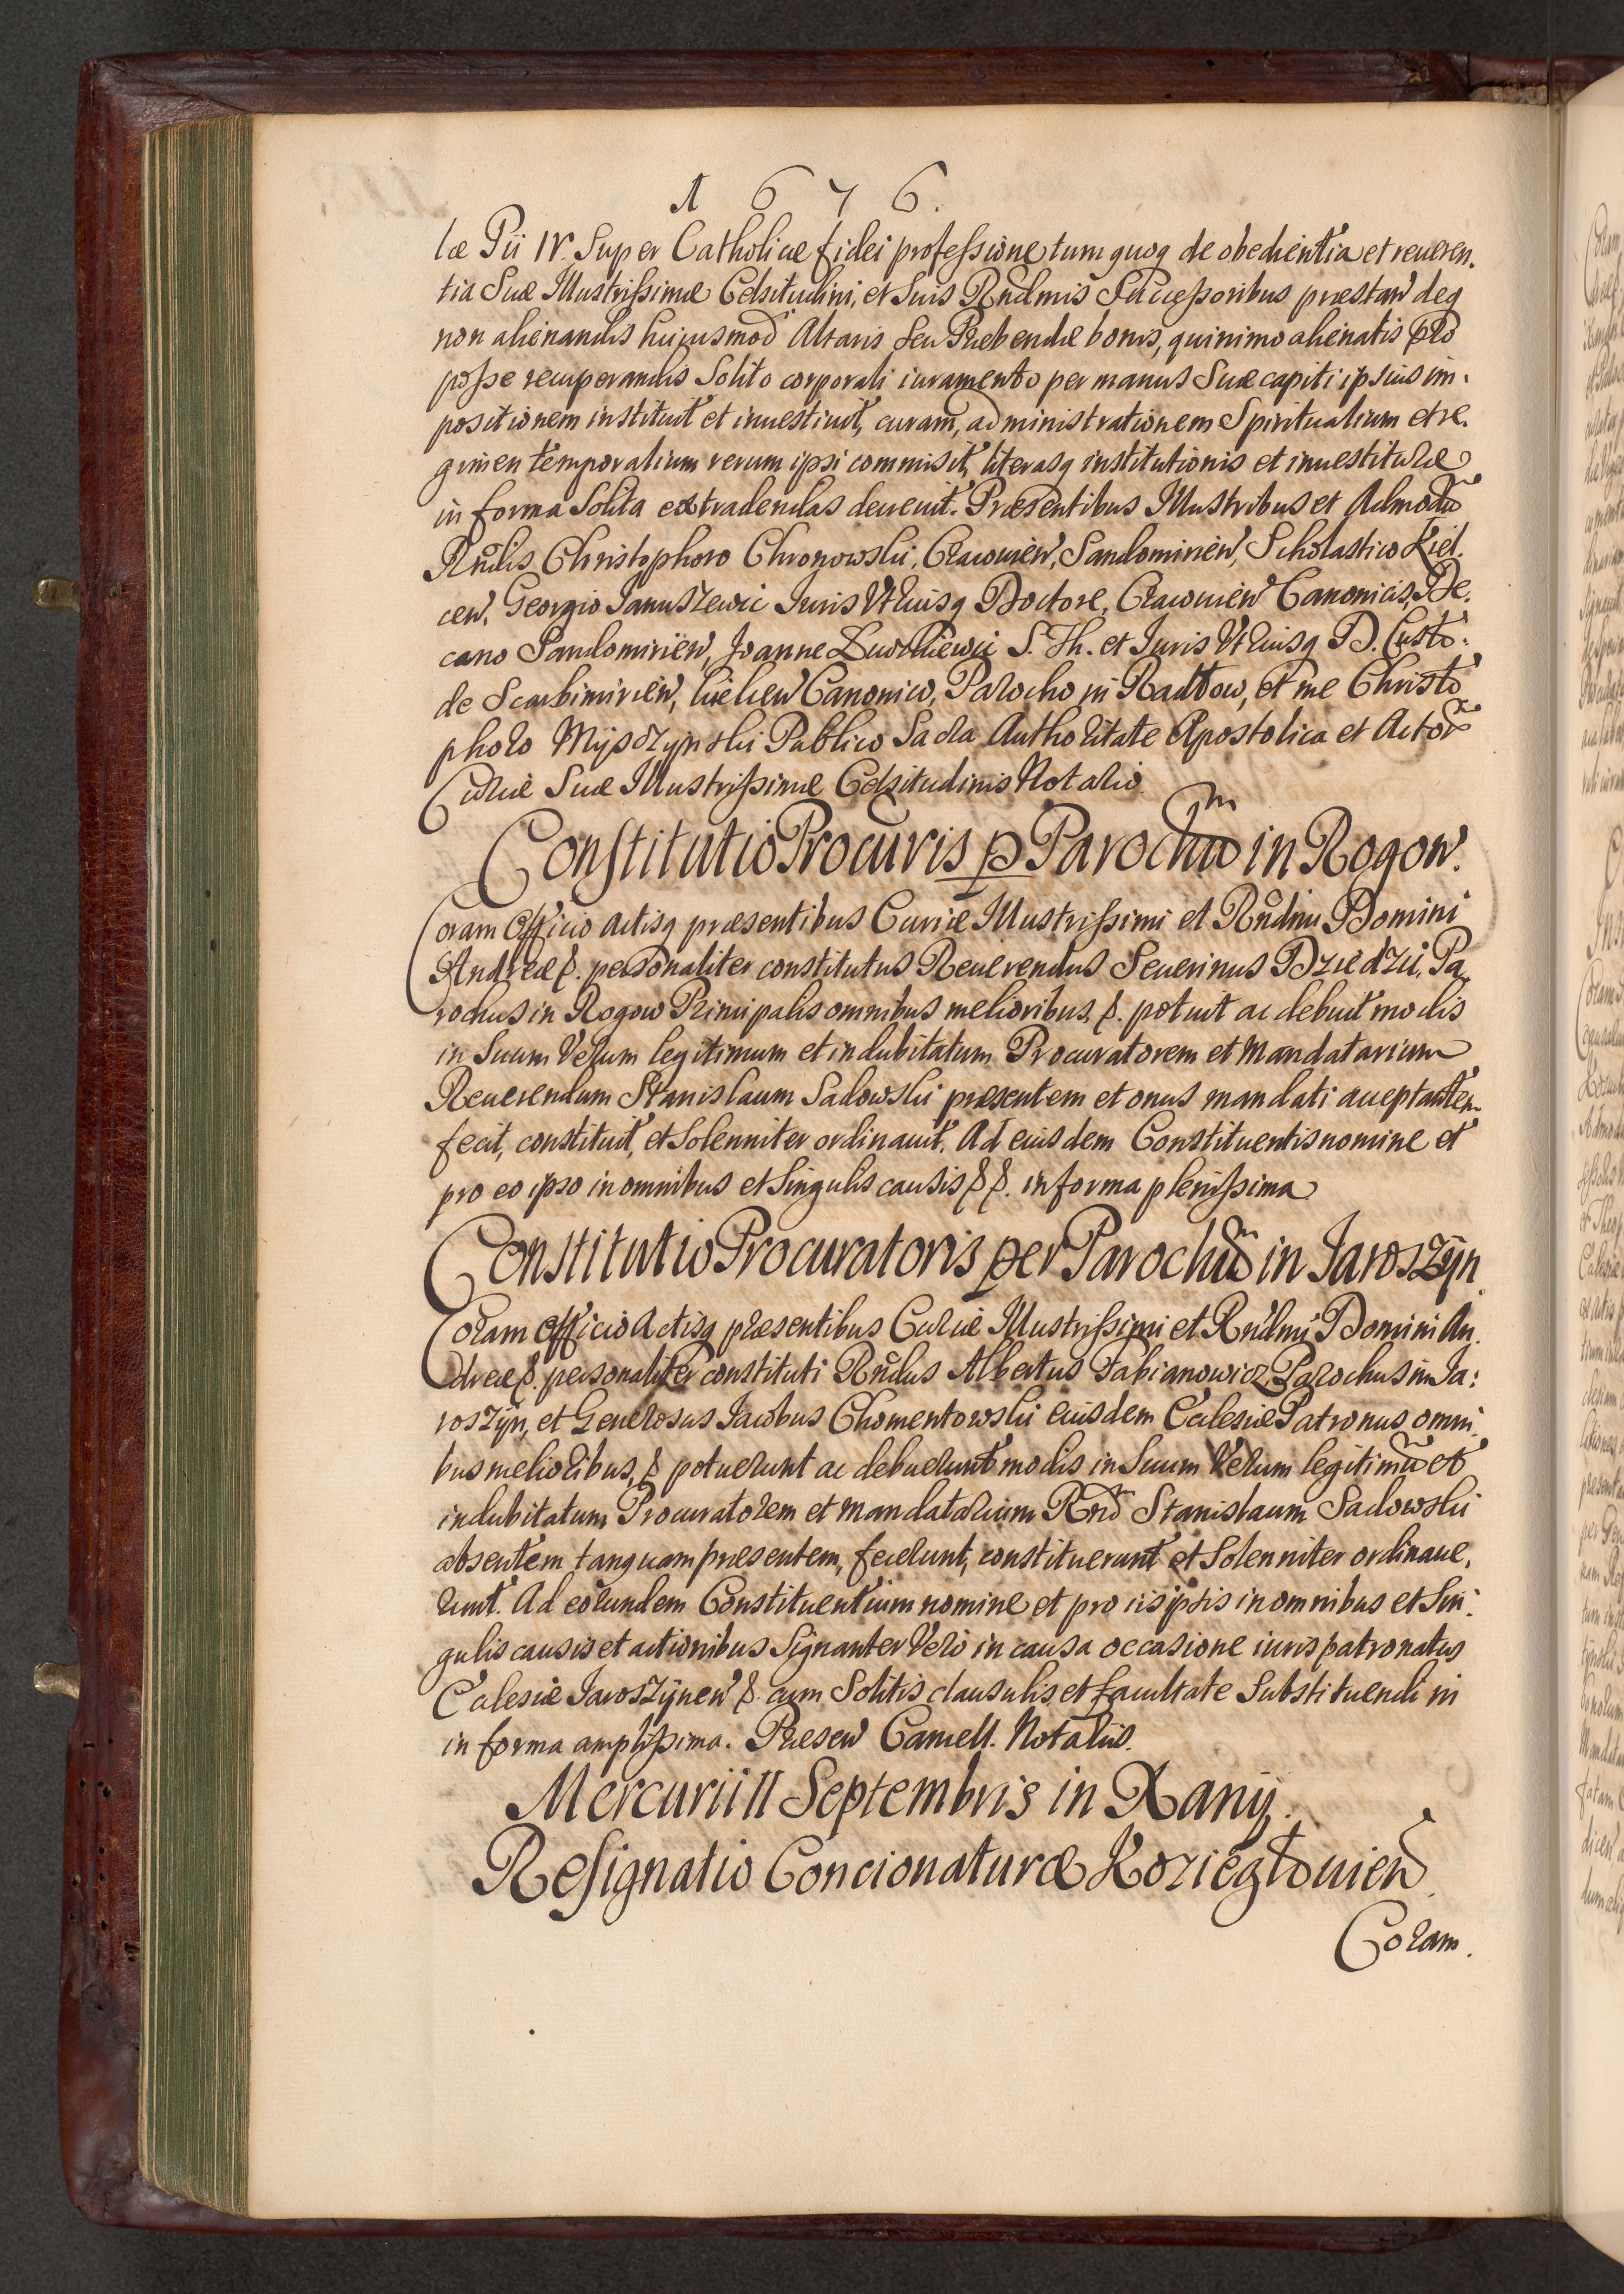 1676.
læ Pii IV. Super Catholicæ fidei professione tum quoq de obedientia et reueren.
tia Suæ Illustrissimæ Celsitudini, et Suis Rndmis Successoribus præstan deq
non alienandis huiusmod Altaris seu Præbendæ bonis, quinimo alienatis pro
posse recuperandis Solito corporali iuramento per manus Suæ capiti ipsius im.
positionem instituit et inuestiuit, curam, administrationem Spiritualium et re.
gimen temporalium rerum ipsi commisit, literasq institutionis et inuestituræ
in forma Solita extradendas decreuit. Præsentibus Illustribus et Admodũ
Rndis Christophoro Chronowski, Cracouien, Sandomirien, Scholastico Kiel.
cen, Georgio Januszewic Iuris Vtriusq Doctore, Cracouien Canonicis, De.
cano Sandomirien, Joanne S. Th. et Iuris Vtriusq D. Custo.
de Scarbimirien, Kielcen Canonico, Parocho in Radłow, et me Christo
phoro Myszyński Publico Sacra Authoritate Apostolica et Actor
Curiæ Suæ Illustrissimæ Celsitudinis Notario.
Constitutio Procuris p Parochũ in Rogow.
Coram Officio Actisq præsentibus Curiæ Illustrissimi et Rndmi Domini
Andreæ &. personaliter constitutus Reuerendus Seuerinus Dziedzic, Pa
rochus in Rogow Principalis omnibus melioribus, &. potuit ac debuit modis
in Suum Verum legitimum et indubitatum Procuratorem et Mandatarium
Reuerendum Stanislaum Sadowski præsentem et onus mandati acceptanten
fecit, constituit, et Solenniter ordinauit. Ad eiusdem Constituentis nomine et
pro eo ipso in omnibus et Singulis causis & &. in forma plenissima
Constitutio Procuratoris per Parochũ in Jaroszyn
Coram Officio Actisq præsentibus Curiæ Illustrissimi et Rndmi Domini An.
dreæ &. personaliter constituti Rndus Albertus Fabianowicz Parochus in Ja:
roszyn, et Generosus Jacobus Chomentowski eiusdem Ecclesiæ Patronus omni.
bus melioribus, & potuerunt ac debuerunt modis in Suum Verum legitimũ et
indubitatum Procuratorem et Mandatarium Rnd Stanislaum Sadowski
absentem tanquam præsentem, fecerunt, constituerunt et Solenniter ordinaue.
runt. Ad eorundem Constituentium nomine et pro iis ipsis in omnibus et Sin.
gulis causis et actionibus Signanter Vero in causa occasione iuris patronatus
Ecclesiæ Jaroszynen &. cum Solitis clausulis, et facultate Substituendi in
in forma amplissima. Præsen Cancell. Notariis.
Mercurii II Septembris in Xanij.
Resignatio Concionaturæ Koziegłouien.
Coram.